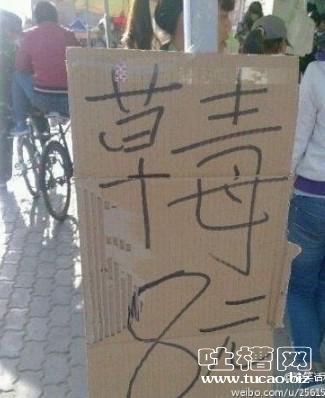 草毒
8
吐槽网
www.tucao.biz
weibo.com/u/25615